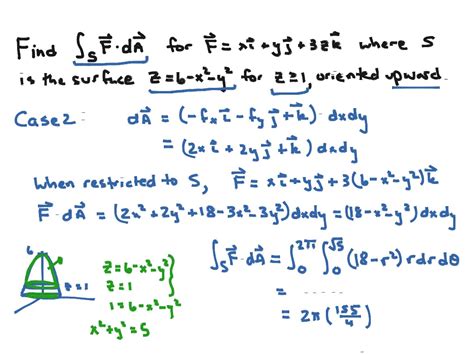 Find ∫_S F⃗·dA⃗ for F⃗ = xi⃗ + yj⃗ + 3zk⃗ where S
is the surface z=6-x²-y² for z≥1, oriented upward.
Case 2: dA⃗ = (-f_x i⃗ - f_y j⃗ + k⃗) dxdy
= (2xi⃗ + 2yj⃗ + k⃗) dxdy
When restricted to S, F⃗ = xi⃗ + yj⃗ + 3(6-x²-y²)k⃗
F⃗·dA⃗ = (2x²+2y²+18-3x²-3y²)dxdy = (18-x²-y²)dxdy
6
z=1
z=6-x²-y²
z=1
1=6-x²-y²
x²+y²=5
∫_S F⃗·dA⃗ = ∫_0^{2π} ∫_0^{√5} (18-r²) r dr dθ
= ......
= 2π(155/4)